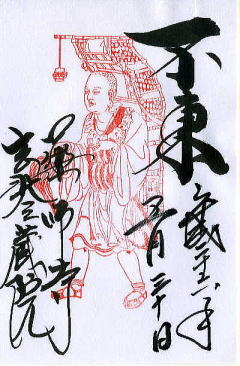 不東
平成二十一年
五月三十日
薬師寺
玄奘三蔵院